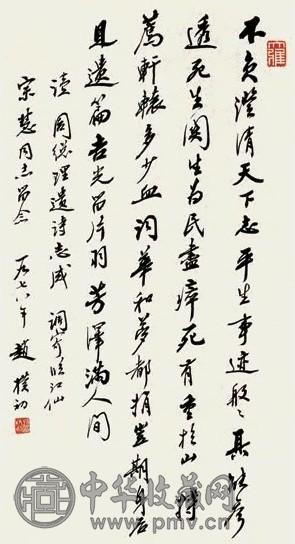 不負澄清天下志平生事迹般々真能參
透死生関生為民盡瘁死有重於山
薦軒轅多少血詞華和夢都捐豈期身后
見遺篇吉光留片羽芳澤滿人間
读周總理遺诗志感 調寄临江仙
宗慧同志留念 一九七八年 趙樸初
中华收藏网
www.pmv.cn